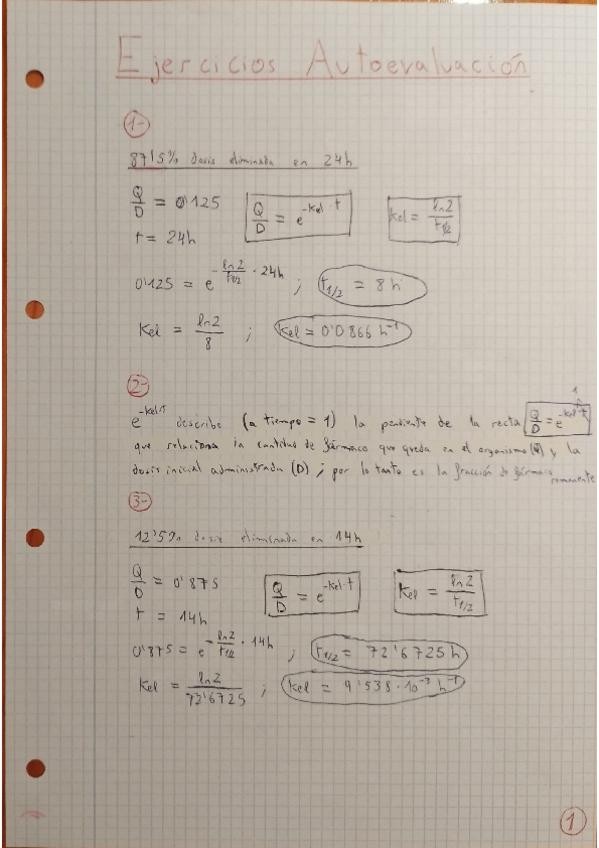 Ejercicios Autoevaluación
1-
87'5% dosis eliminada en 24h
Q/D = 0'125
Q/D = e^-Kel·t
Kel = ln2/t1/2
t = 24h
0'125 = e^-ln2/t1/2 · 24h ; t1/2 = 8h
Kel = ln2/8 ; Kel = 0'0866 h^-1
2-
1
e^-Kel·t describe (a tiempo = 1) la pendiente de la recta Q/D = e^-Kel·t
que relaciona la cantidad de fármaco que queda en el organismo (Q) y la
dosis inicial administrada (D) ; por lo tanto es la fracción de fármaco
remanente
3-
12'5% dosis eliminada en 14h
Q/D = 0'875
Q/D = e^-Kel·t
Kel = ln2/t1/2
t = 14h
0'875 = e^-ln2/t1/2 · 14h ; t1/2 = 72'6725 h
Kel = ln2/72'6725 ; Kel = 9'538·10^-3 h^-1
1